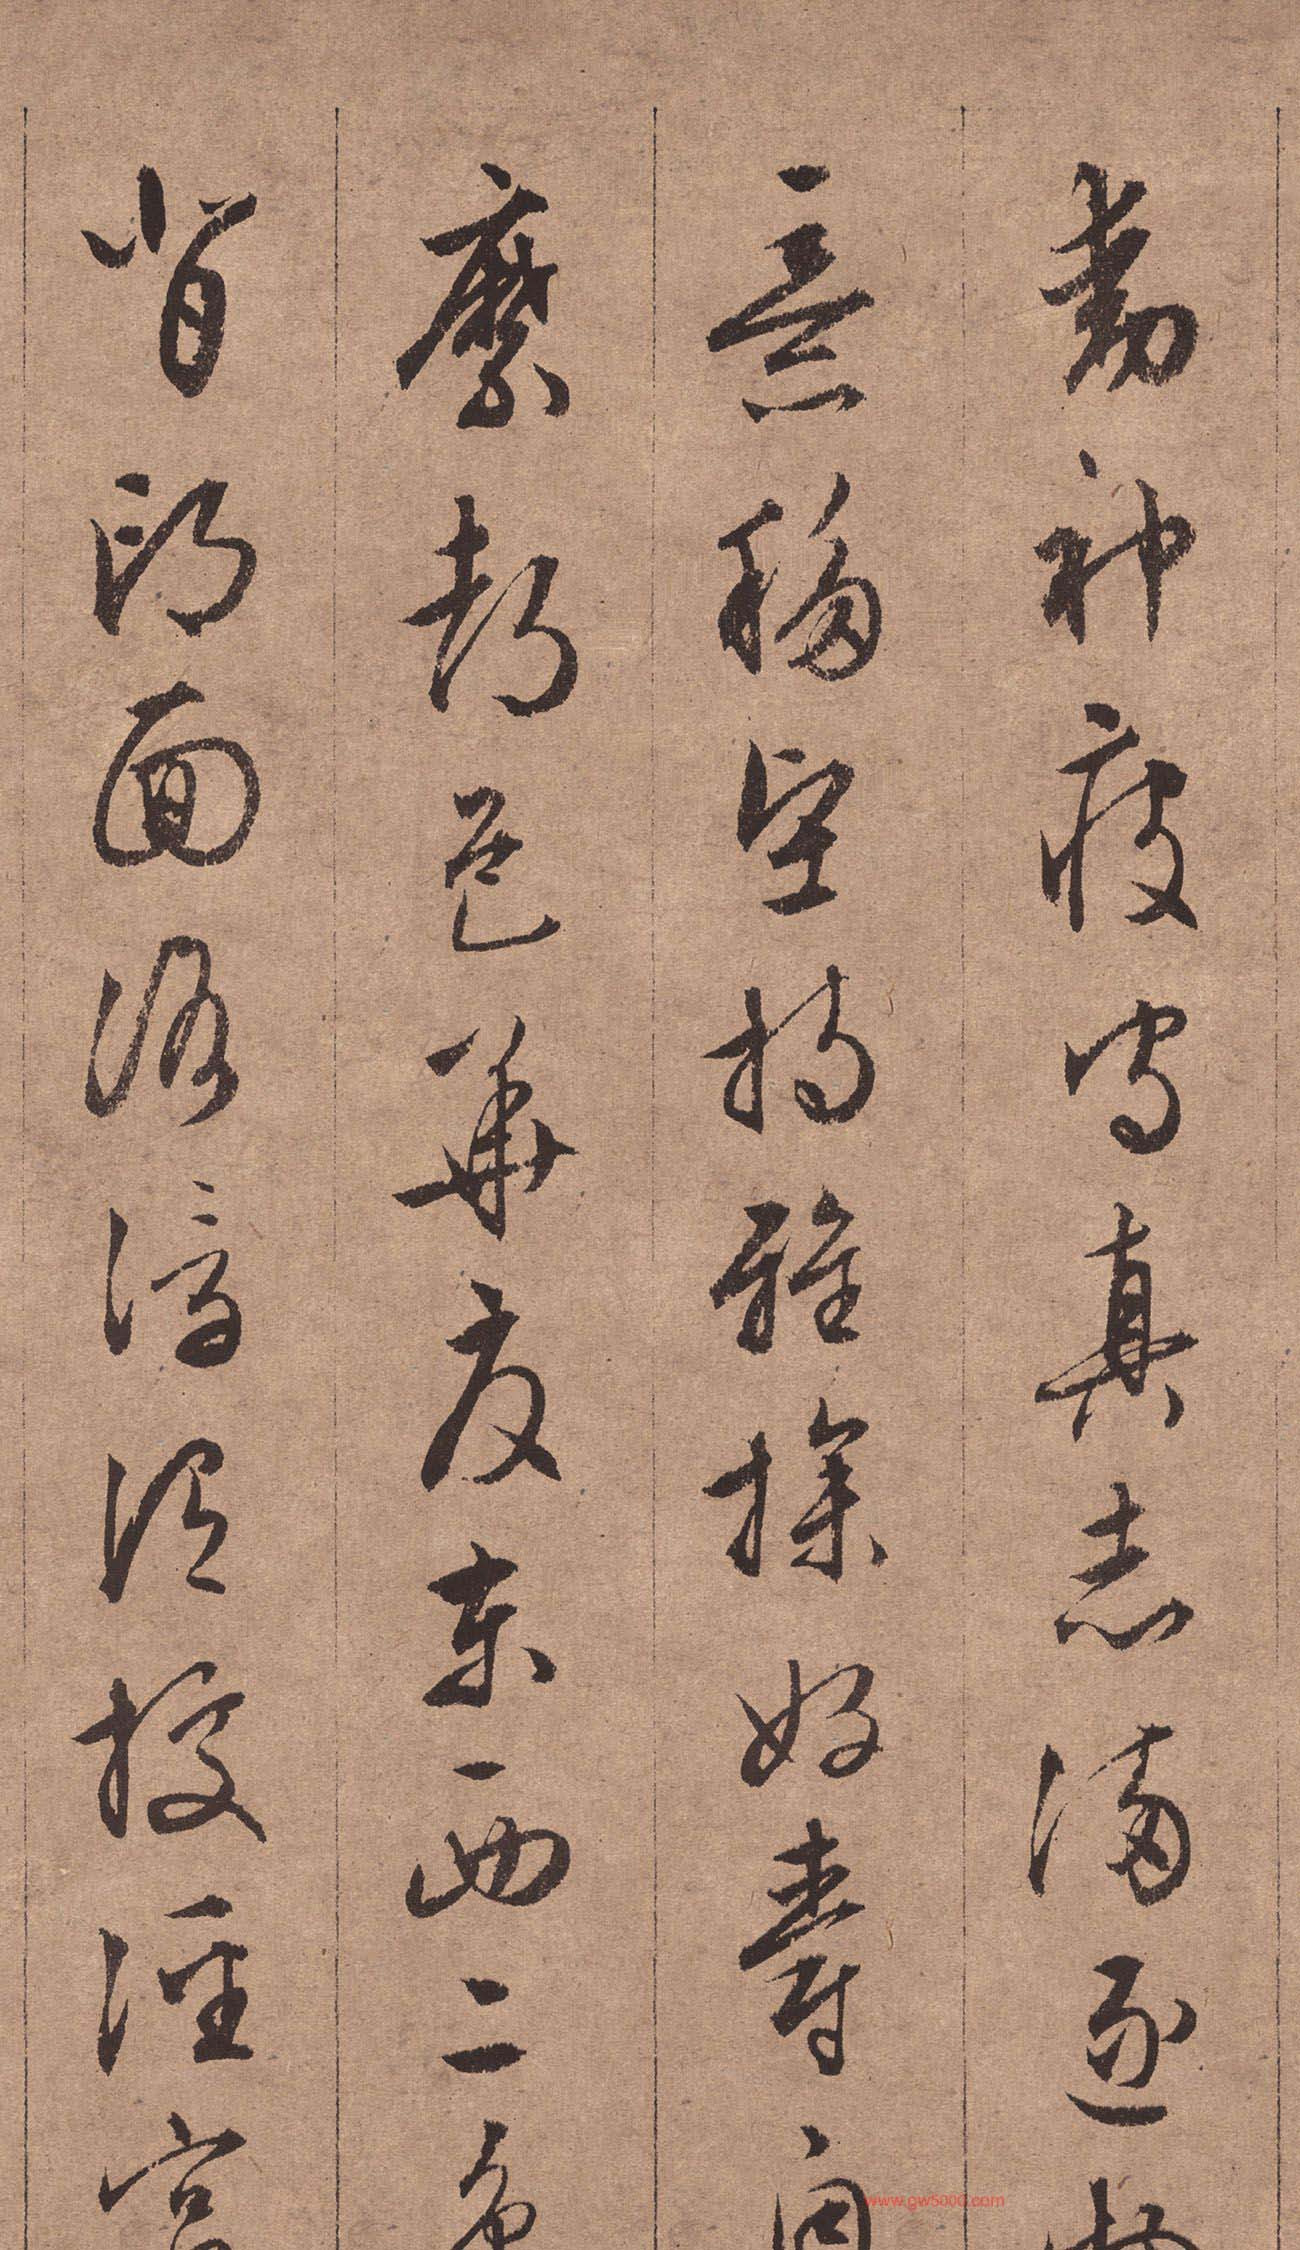 動神疲守真志滿逐物
意移堅持雅操好爵自
縻都邑華夏東西二京
背邙面洛浮渭據涇宮
www.gw5000.com